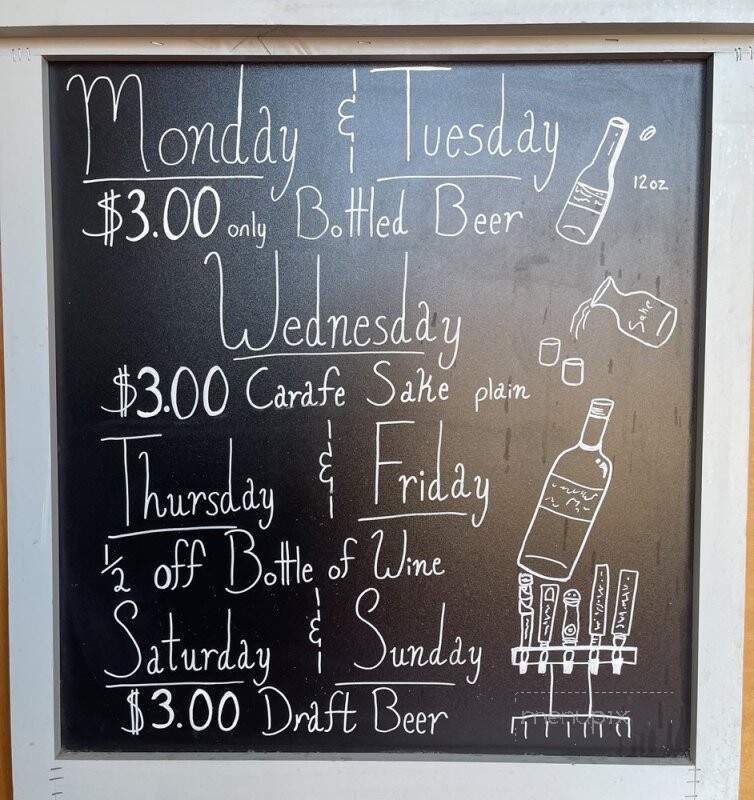 Monday & Tuesday
$3.00 only Bottled Beer
12oz
Wednesday
Sake
$3.00 Carafe Sake plain
Thursday & Friday
1/2 off Bottle of Wine
Saturday & Sunday
$3.00 Draft Beer
menupix